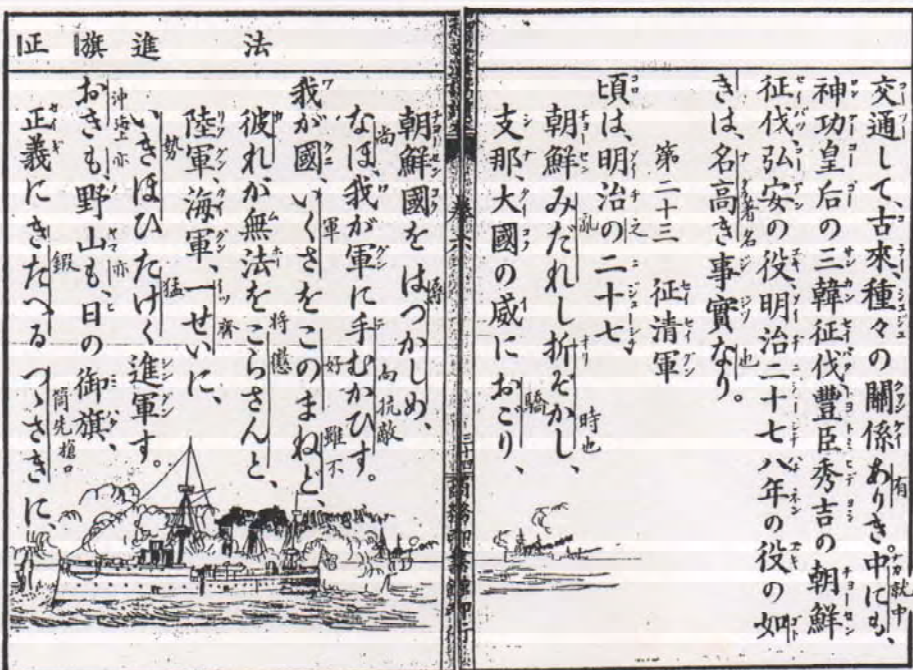 交通して、古來、種々の關係ありき。中にも、
神功皇后の三韓征伐、豐臣秀吉の朝鮮
征伐、弘安の役、明治二十七八年の役の如
きは、名高き事實なり。
第二十三　征清軍
頃は、明治の二十七、
朝鮮みだれし折ぞかし、
支那、大國の威におごり、
卷六
三十四
商務印書館印行
法
進
旗
正
朝鮮國をはづかしめ、
なほ、我が軍に手むかひす。
我が國いくさをこのまねど、
彼れが無法をこらさんと、
陸軍海軍、一せいに、
いきほひたけく進軍す。
おきも野山も、日の御旗、
正義にきたへるつゝさきに、